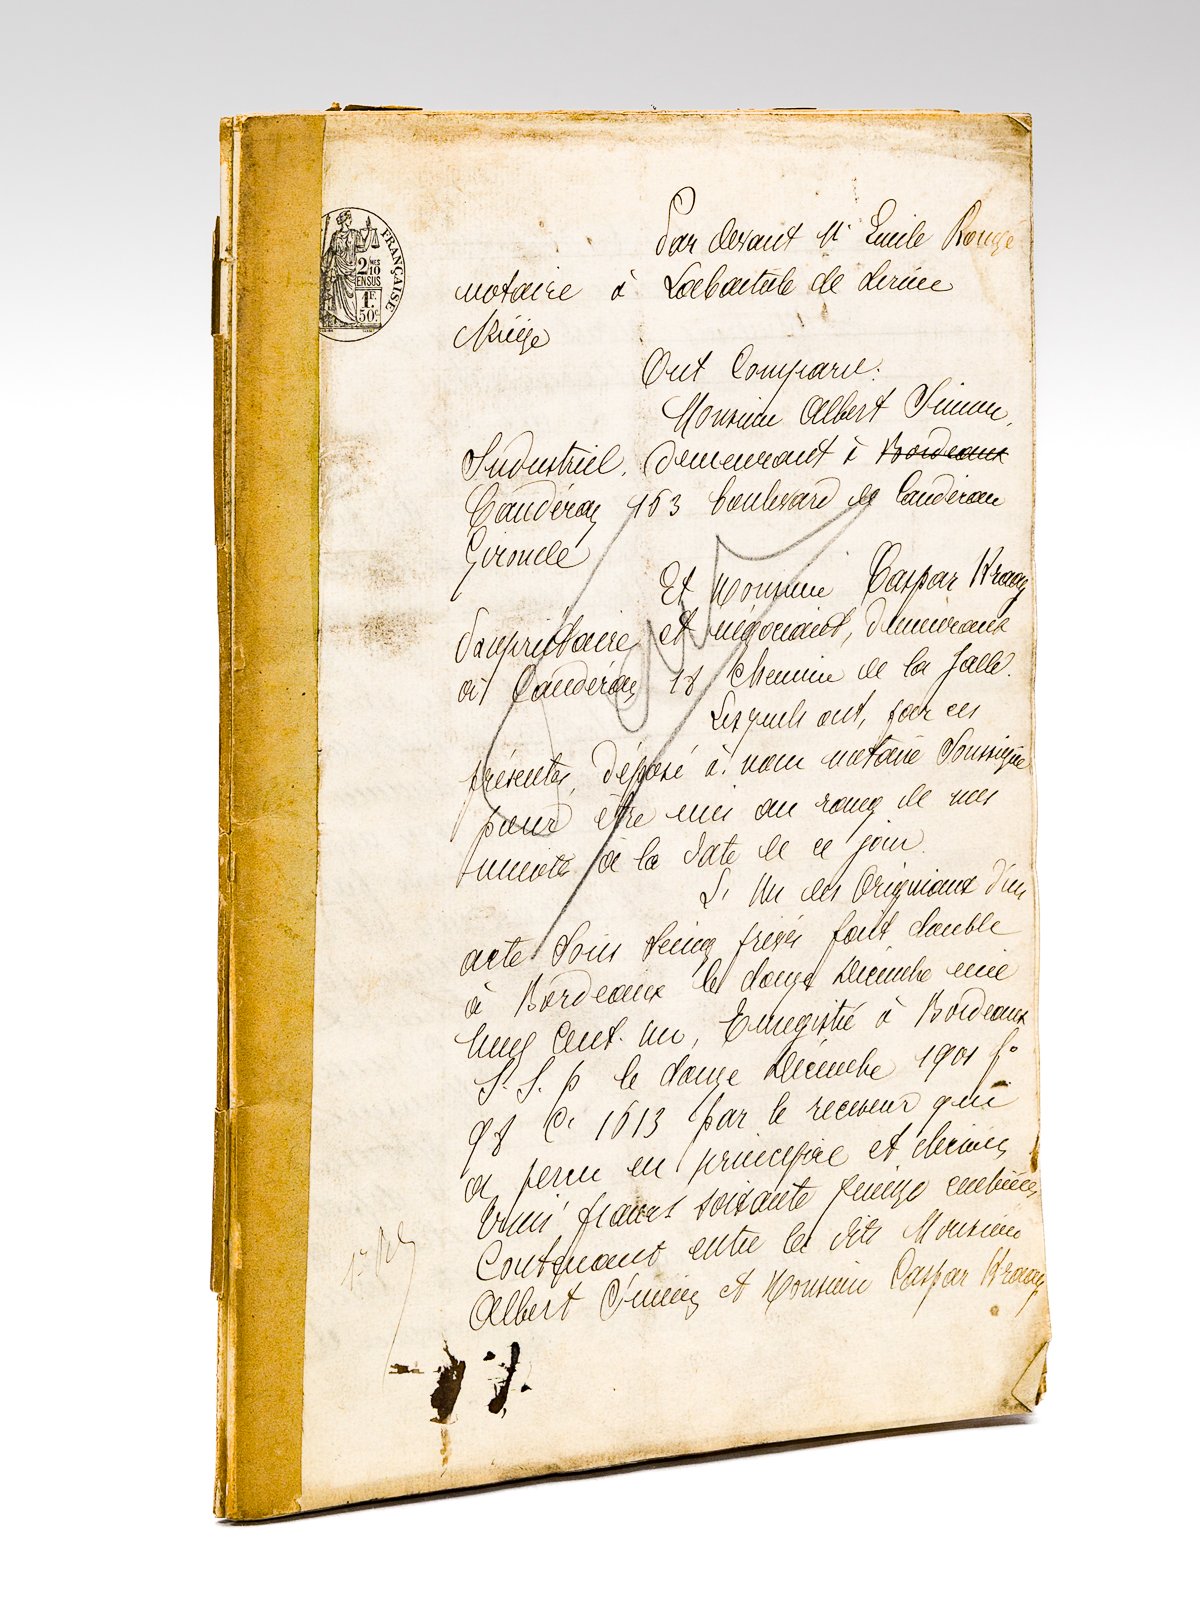 FRANÇAISE
2/10 MES
EN SUS
1F.
50c
Par devant Me Emile Rougé
notaire à Labastide de Sérou
Ariège
Ont Comparu:
Monsieur Albert Simon,
Industriel, demeurant à Bordeaux
Caudéran 163 boulevard de Caudéran
Gironde
Et Monsieur Caspar Kraay
propriétaire et négociant, demeurant
à Caudéran 18 Chemin de la
Lesquels ont, par ces
présentes, déposé à nous notaire soussigné
pour être mis au rang de nos
minutes à la date de ce jour
L' Un des Originaux d'un
acte sous seing privés fait double
à Bordeaux le douze Décembre mil
neuf cent un, Enregistré à Bordeaux
S. S. p le douze Décembre 1901 fo
98 Ce 1613 par le receveur qui
a perçu en principal et décimes
francs soixante quinze centimes
Contenant entre les dits Monsieur
Albert Simon et Monsieur Caspar Kraay